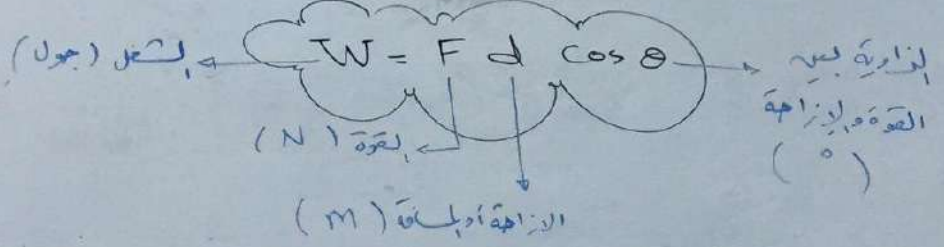 W = F d cos θ
الشغل (جول)
الزاوية بين
القوة والإزاحة
( ° )
القوة (N)
الازاحة أو المسافة (m)